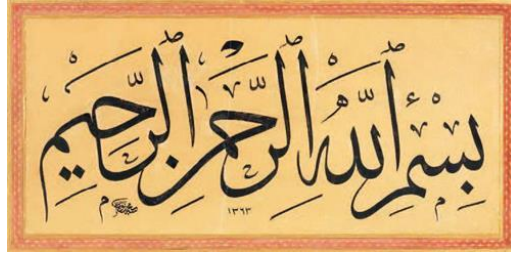 بِسْمِ اللهِ الرَّحْمٰنِ الرَّحِيمِ
١٣٦٣